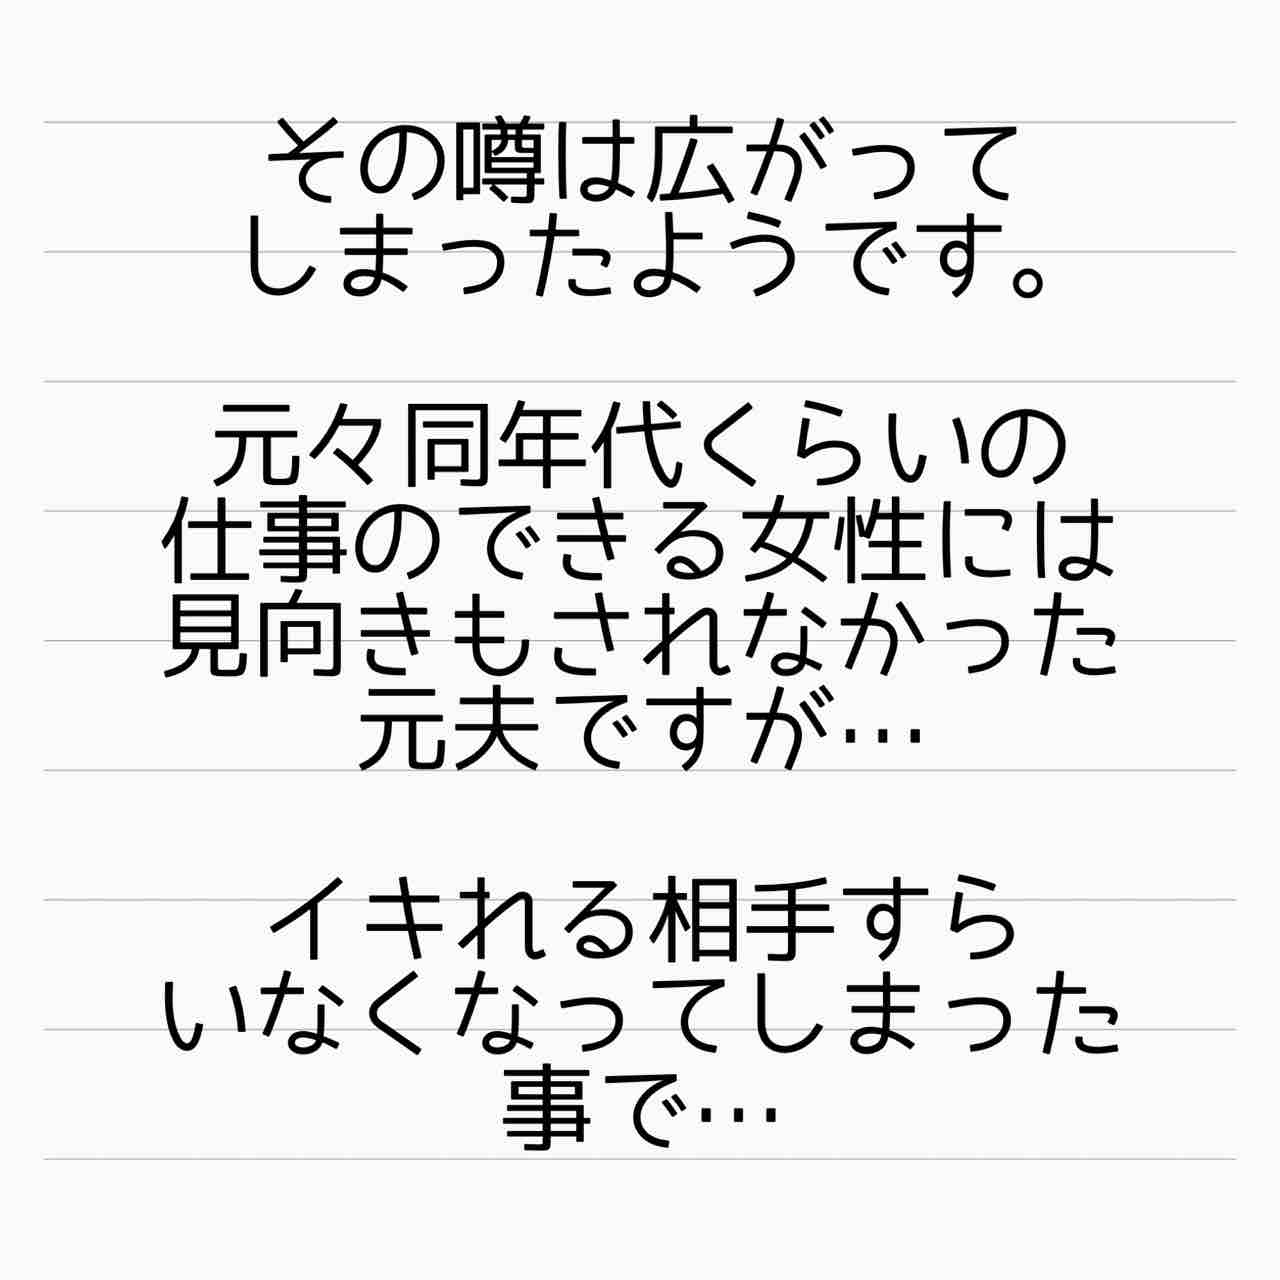 その噂は広がって
しまったようです。
元々同年代くらいの
仕事のできる女性には
見向きもされなかった
元夫ですが…
イキれる相手すら
いなくなってしまった
事で…